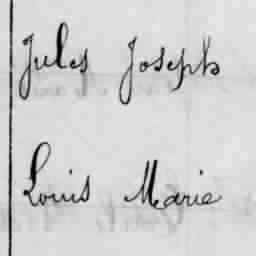 Jules Joseph
Louis Marie